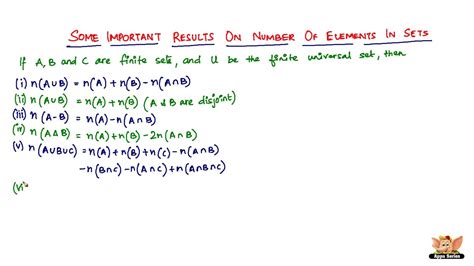 SOME IMPORTANT RESULTS ON NUMBER OF ELEMENTS IN SETS
If A, B and C are finite sets, and U be the finite universal set, then
(i) n(A∪B) = n(A) + n(B) - n(A∩B)
(ii) n(A∪B) = n(A) + n(B) (A & B are disjoint)
(iii) n(A-B) = n(A) - n(A∩B)
iv) n(A∆B) = n(A) + n(B) - 2n(A∩B)
(v) n(A∪B∪C) = n(A) + n(B) + n(C) - n(A∩B)
-n(B∩C) - n(A∩C) + n(A∩B∩C)
(vi
Appu Series